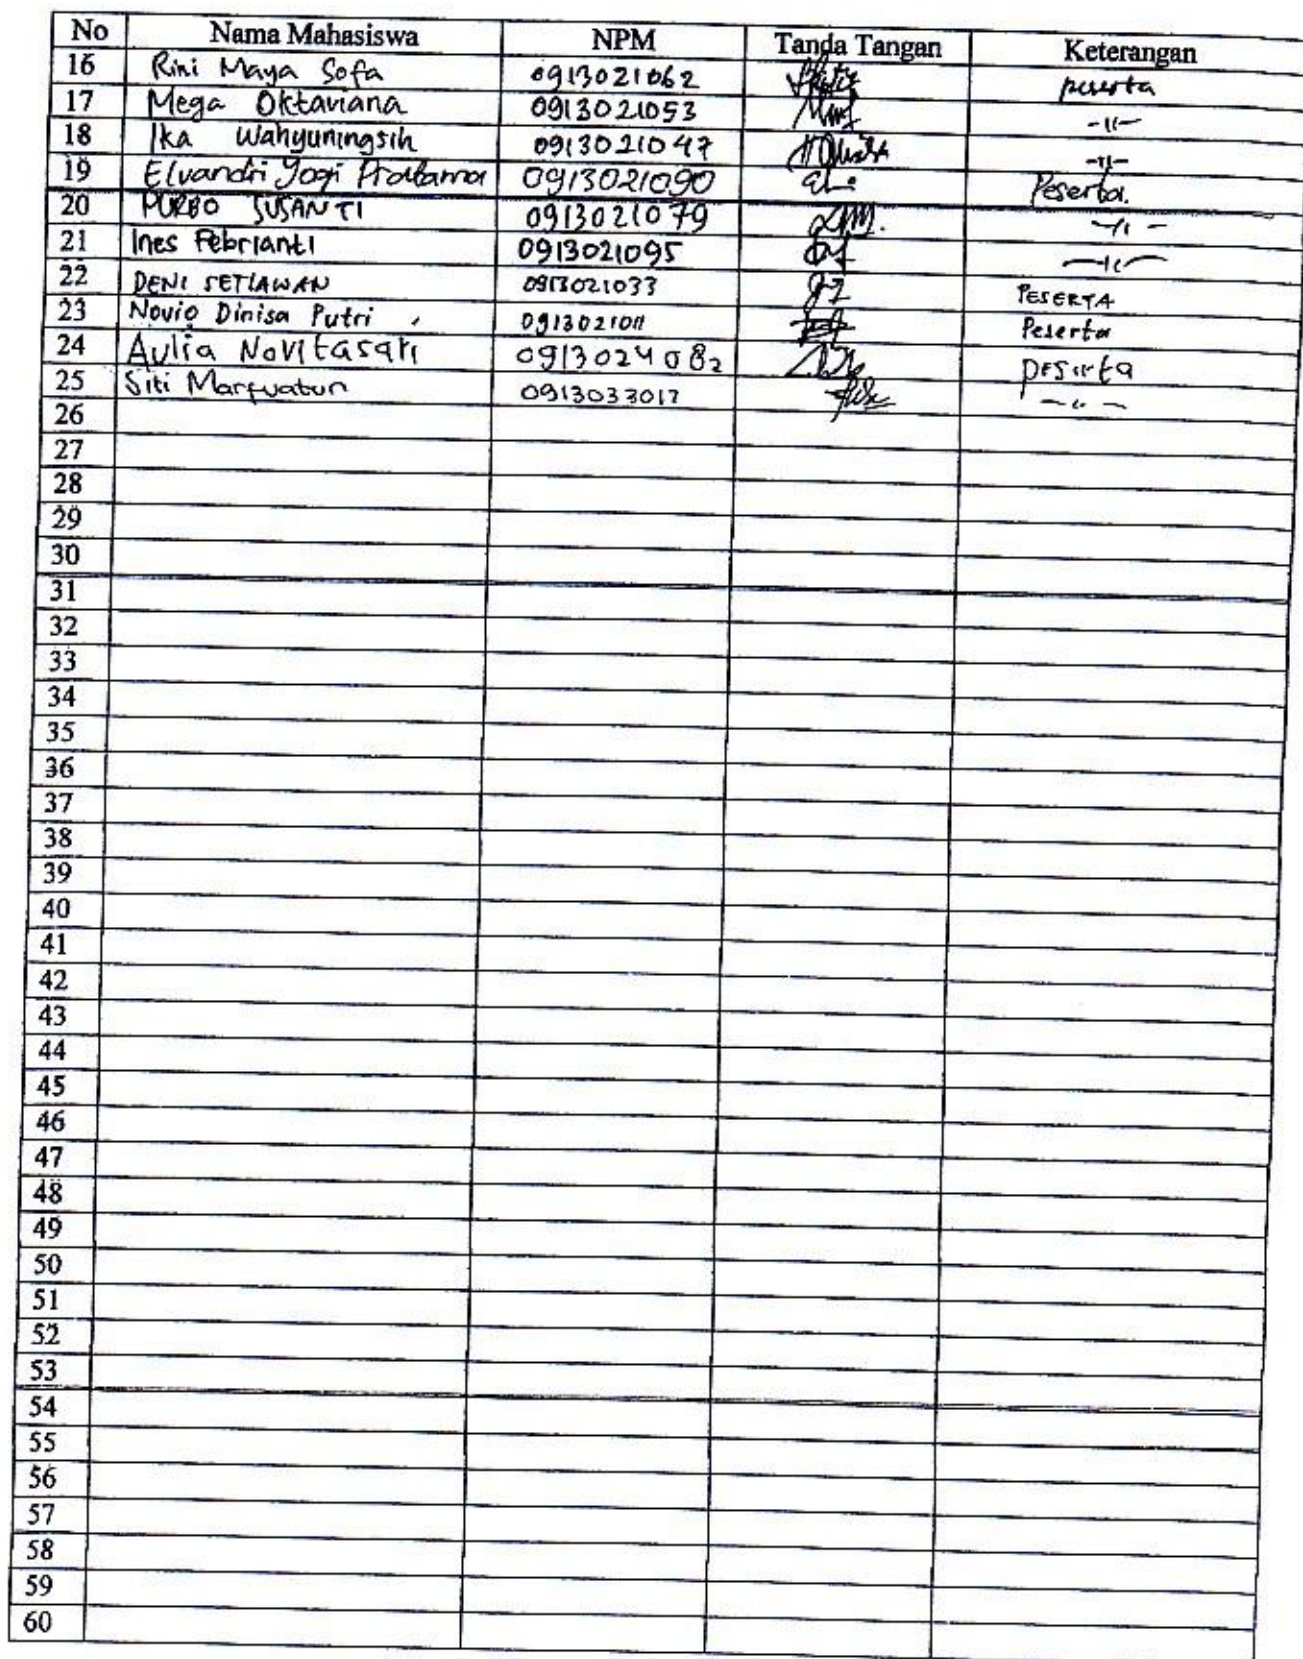 No Nama Mahasiswa NPM Tanda Tangan Keterangan
16 Rini Maya Sofa 0913021062 peserta
17 Mega Oktaviana 0913021053 -"-
18 Ika Wahyuningsih 0913021047 -"-
19 Elvandri Yogi Pratama 0913021090 Peserta.
20 PURBO SUSANTI 0913021079 -"-
21 Ines Febrianti 0913021095 -"-
22 DENI SETIAWAN 0913021033 PESERTA
23 Novia Dinisa Putri 0913021011 Peserta
24 Aulia Novitasari 0913024082 peserta
25 Siti 0913033017 -"-
26
27
28
29
30
31
32
33
34
35
36
37
38
39
40
41
42
43
44
45
46
47
48
49
50
51
52
53
54
55
56
57
58
59
60